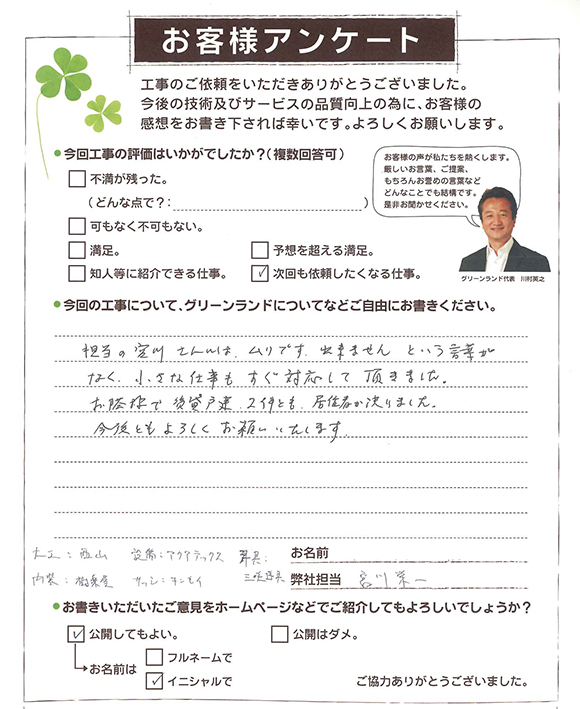 お客様アンケート
工事のご依頼をいただきありがとうございました。
今後の技術及びサービスの品質向上の為に、お客様の
感想をお書き下されば幸いです。よろしくお願いします。
●今回工事の評価はいかがでしたか？(複数回答可)
お客様の声が私たちを熱くします。
厳しいお言葉、ご提案、
もちろんお誉めの言葉など
どんなことでも結構です。
是非お聞かせください。
グリーンランド代表 川村英之
□不満が残った。
(どんな点で？: )
□可もなく不可もない。
□満足。 □予想を超える満足。
□知人等に紹介できる仕事。 ☑次回も依頼したくなる仕事。
●今回の工事について、グリーンランドについてなどご自由にお書きください。
担当の宮川さんは、ムリです、出来ません という言葉が
なく、小さな仕事も すぐ対応して 頂きました。
お陰様で 賃貸戸建 2件とも、居住者が決りました。
今後ともよろしく お願いいたします。
大工：西山 設備：アクアテックス 建具：
内装： サッシ：
お名前
弊社担当 宮川栄一
●お書きいただいたご意見をホームページなどでご紹介してもよろしいでしょうか？
☑公開してもよい。 □公開はダメ。
お名前は □フルネームで
☑イニシャルで
ご協力ありがとうございました。